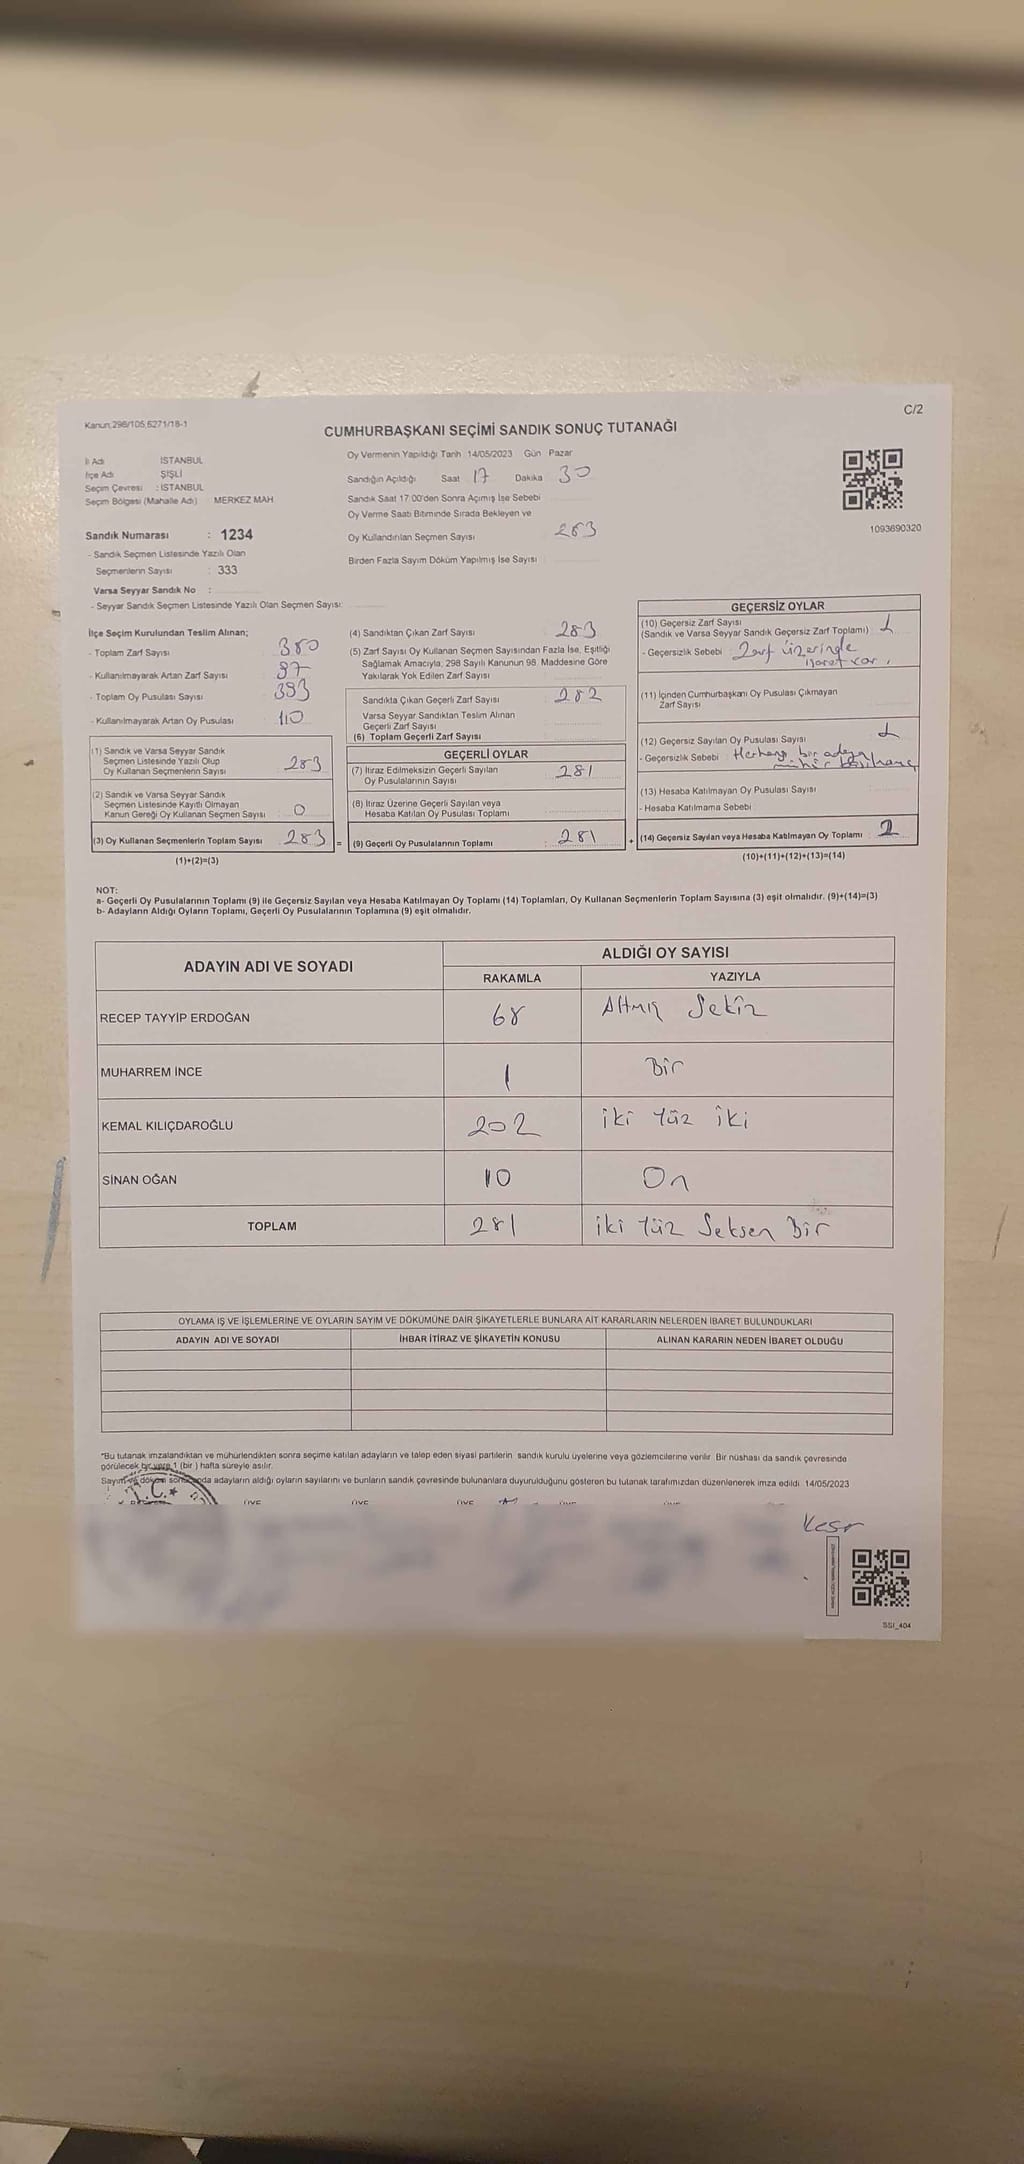 C/2
Kanun;298/105,6271/18-1
CUMHURBAŞKANI SEÇİMİ SANDIK SONUÇ TUTANAĞI
İl Adı : İSTANBUL
İlçe Adı : ŞİŞLİ
Seçim Çevresi : İSTANBUL
Seçim Bölgesi (Mahalle Adı) : MERKEZ MAH.
Oy Vermenin Yapıldığı Tarih 14/05/2023 Gün Pazar
Sandığın Açıldığı Saat 17 Dakika 30
Sandık Saat 17:00'den Sonra Açımış İse Sebebi
Oy Verme Saati Bitiminde Sırada Bekleyen ve
Oy Kullandırılan Seçmen Sayısı 283
Birden Fazla Sayım Döküm Yapılmış İse Sayısı
1093690320
Sandık Numarası : 1234
- Sandık Seçmen Listesinde Yazılı Olan
Seçmenlerin Sayısı : 333
Varsa Seyyar Sandık No :
- Seyyar Sandık Seçmen Listesinde Yazılı Olan Seçmen Sayısı:
İlçe Seçim Kurulundan Teslim Alınan;
- Toplam Zarf Sayısı 380
- Kullanılmayarak Artan Zarf Sayısı 97
- Toplam Oy Pusulası Sayısı 393
- Kullanılmayarak Artan Oy Pusulası 110
(1) Sandık ve Varsa Seyyar Sandık
Seçmen Listesinde Yazılı Olup
Oy Kullanan Seçmenlerin Sayısı 283
(2) Sandık ve Varsa Seyyar Sandık
Seçmen Listesinde Kayıtlı Olmayan
Kanun Gereği Oy Kullanan Seçmen Sayısı 0
(3) Oy Kullanan Seçmenlerin Toplam Sayısı 283 =
(1)+(2)=(3)
(4) Sandıktan Çıkan Zarf Sayısı 283
(5) Zarf Sayısı Oy Kullanan Seçmen Sayısından Fazla İse, Eşitliği
Sağlamak Amacıyla, 298 Sayılı Kanunun 98. Maddesine Göre
Yakılarak Yok Edilen Zarf Sayısı
Sandıkta Çıkan Geçerli Zarf Sayısı 282
Varsa Seyyar Sandıktan Teslim Alınan
Geçerli Zarf Sayısı
(6) Toplam Geçerli Zarf Sayısı
GEÇERLİ OYLAR
(7) İtiraz Edilmeksizin Geçerli Sayılan
Oy Pusulalarının Sayısı 281
(8) İtiraz Üzerine Geçerli Sayılan veya
Hesaba Katılan Oy Pusulası Toplamı
(9) Geçerli Oy Pusulalarının Toplamı : 281 +
GEÇERSİZ OYLAR
(10) Geçersiz Zarf Sayısı
(Sandık ve Varsa Seyyar Sandık Geçersiz Zarf Toplamı) 1
- Geçersizlik Sebebi : Zarf üzerinde
işaret var.
(11) İçinden Cumhurbaşkanı Oy Pusulası Çıkmayan
Zarf Sayısı
(12) Geçersiz Sayılan Oy Pusulası Sayısı 1
- Geçersizlik Sebebi : Herhangi bir adaya
mühür basılmamış
(13) Hesaba Katılmayan Oy Pusulası Sayısı
- Hesaba Katılmama Sebebi
(14) Geçersiz Sayılan veya Hesaba Katılmayan Oy Toplamı : 2
(10)+(11)+(12)+(13)=(14)
NOT:
a- Geçerli Oy Pusulalarının Toplamı (9) ile Geçersiz Sayılan veya Hesaba Katılmayan Oy Toplamı (14) Toplamları, Oy Kullanan Seçmenlerin Toplam Sayısına (3) eşit olmalıdır. (9)+(14)=(3)
b- Adayların Aldığı Oyların Toplamı, Geçerli Oy Pusulalarının Toplamına (9) eşit olmalıdır.
ADAYIN ADI VE SOYADI
ALDIĞI OY SAYISI
RAKAMLA YAZIYLA
RECEP TAYYİP ERDOĞAN 68 Altmış Sekiz
MUHARREM İNCE 1 Bir
KEMAL KILIÇDAROĞLU 202 iki Yüz iki
SİNAN OĞAN 10 On
TOPLAM 281 iki Yüz Seksen Bir
OYLAMA İŞ VE İŞLEMLERİNE VE OYLARIN SAYIM VE DÖKÜMÜNE DAİR ŞİKAYETLERLE BUNLARA AİT KARARLARIN NELERDEN İBARET BULUNDUKLARI
ADAYIN ADI VE SOYADI İHBAR İTİRAZ VE ŞİKAYETİN KONUSU ALINAN KARARIN NEDEN İBARET OLDUĞU
*Bu tutanak imzalandıktan ve mühürlendikten sonra seçime katılan adayların ve talep eden siyasi partilerin sandık kurulu üyelerine veya gözlemcilerine verilir. Bir nüshası da sandık çevresinde
görülecek bir yere 1 (bir) hafta süreyle asılır.
Sayım ve döküm sonunda adayların aldığı oyların sayılarını ve bunların sandık çevresinde bulunanlara duyurulduğunu gösteren bu tutanak tarafımızdan düzenlenerek imza edildi. 14/05/2023
T.C.
ÜYE ÜYE ÜYE ÜYE ÜYE ÜYE
SSI_404